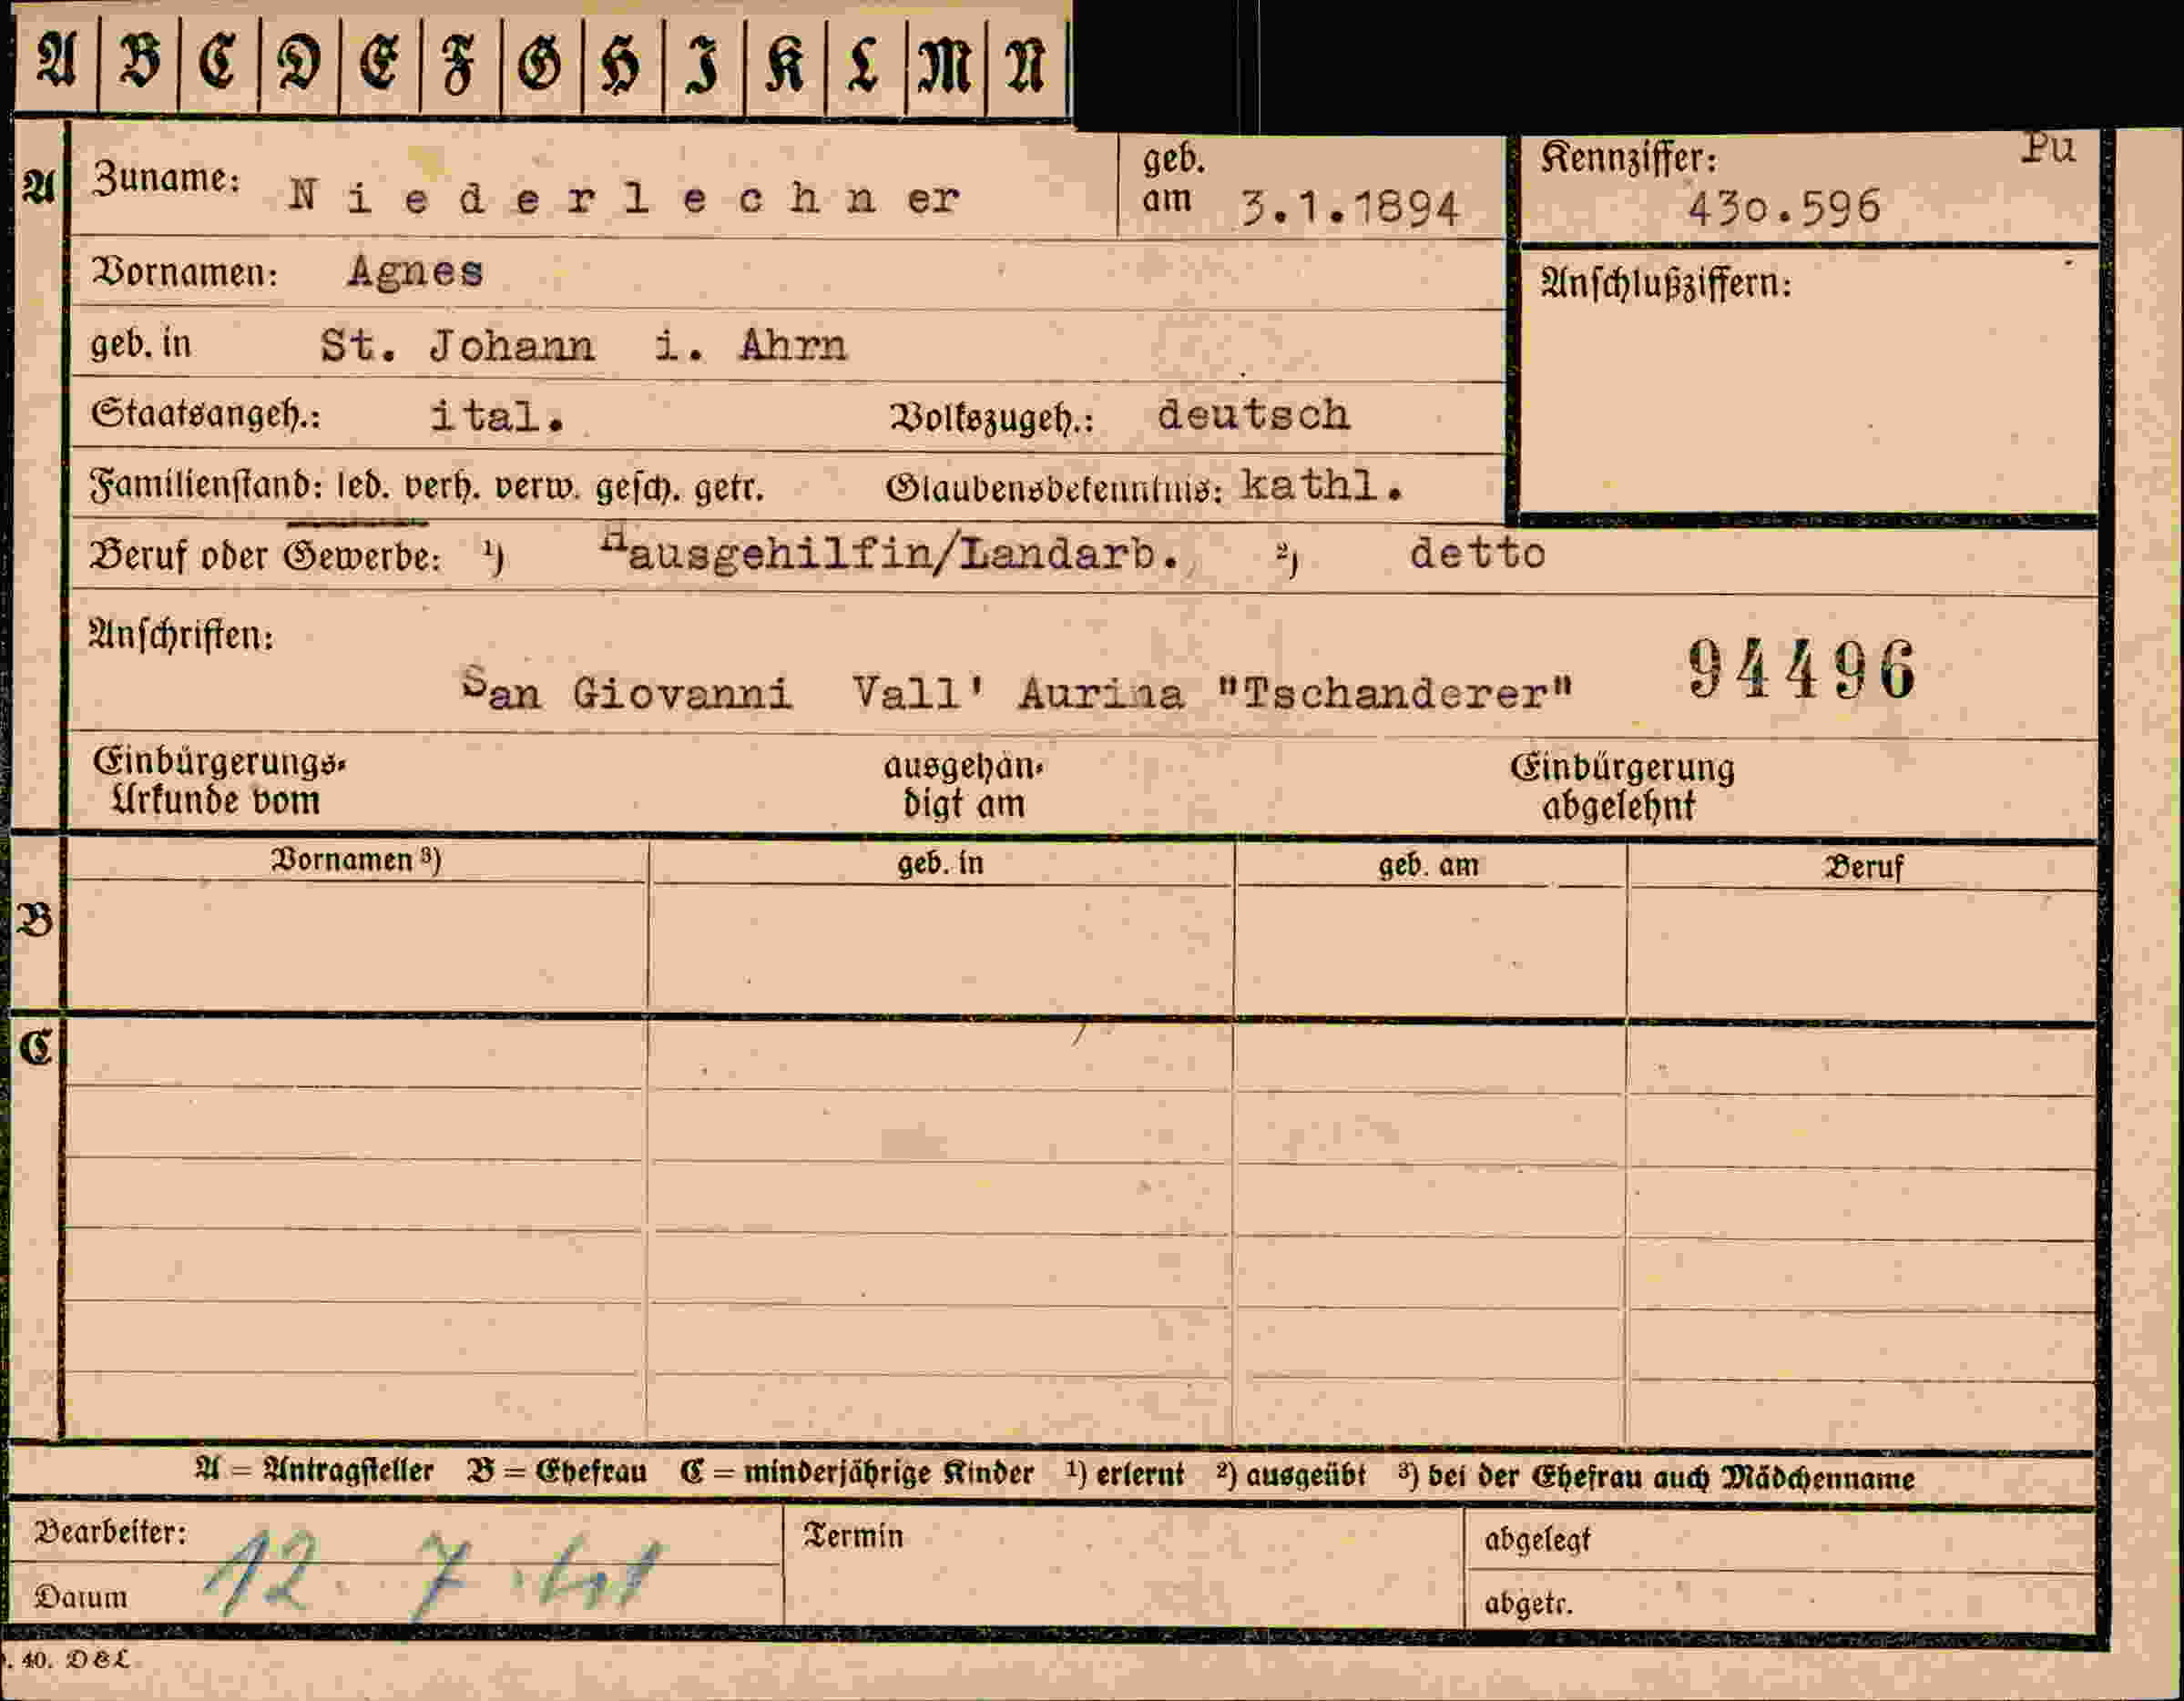 A B C D E F G H I K L M N
A Zuname: Niederlechner geb. am 3.1.1894 Kennziffer: 430.596 Pu
Vornamen: Agnes Anschlußziffern:
geb. in St. Johann i. Ahrn
Staatsangeh.: ital. Volkszugeh.: deutsch
Familienstand: led. verh. verw. gesch. getr. Glaubensbekenntnis: kathl.
Beruf oder Gewerbe: ¹) Hausgehilfin/Landarb. ²) detto
Anschriften:
San Giovanni Vall' Aurina "Tschanderer" 94496
Einbürgerungs- ausgehän- Einbürgerung
Urkunde vom digt am abgelehnt
Vornamen ³) geb. in geb. am Beruf
B
C
A = Antragsteller B = Ehefrau C = minderjährige Kinder ¹) erlernt ²) ausgeübt ³) bei der Ehefrau auch Mädchenname
Bearbeiter: Termin abgelegt
12. 7.
Datum abgetr.
. 40. DEL